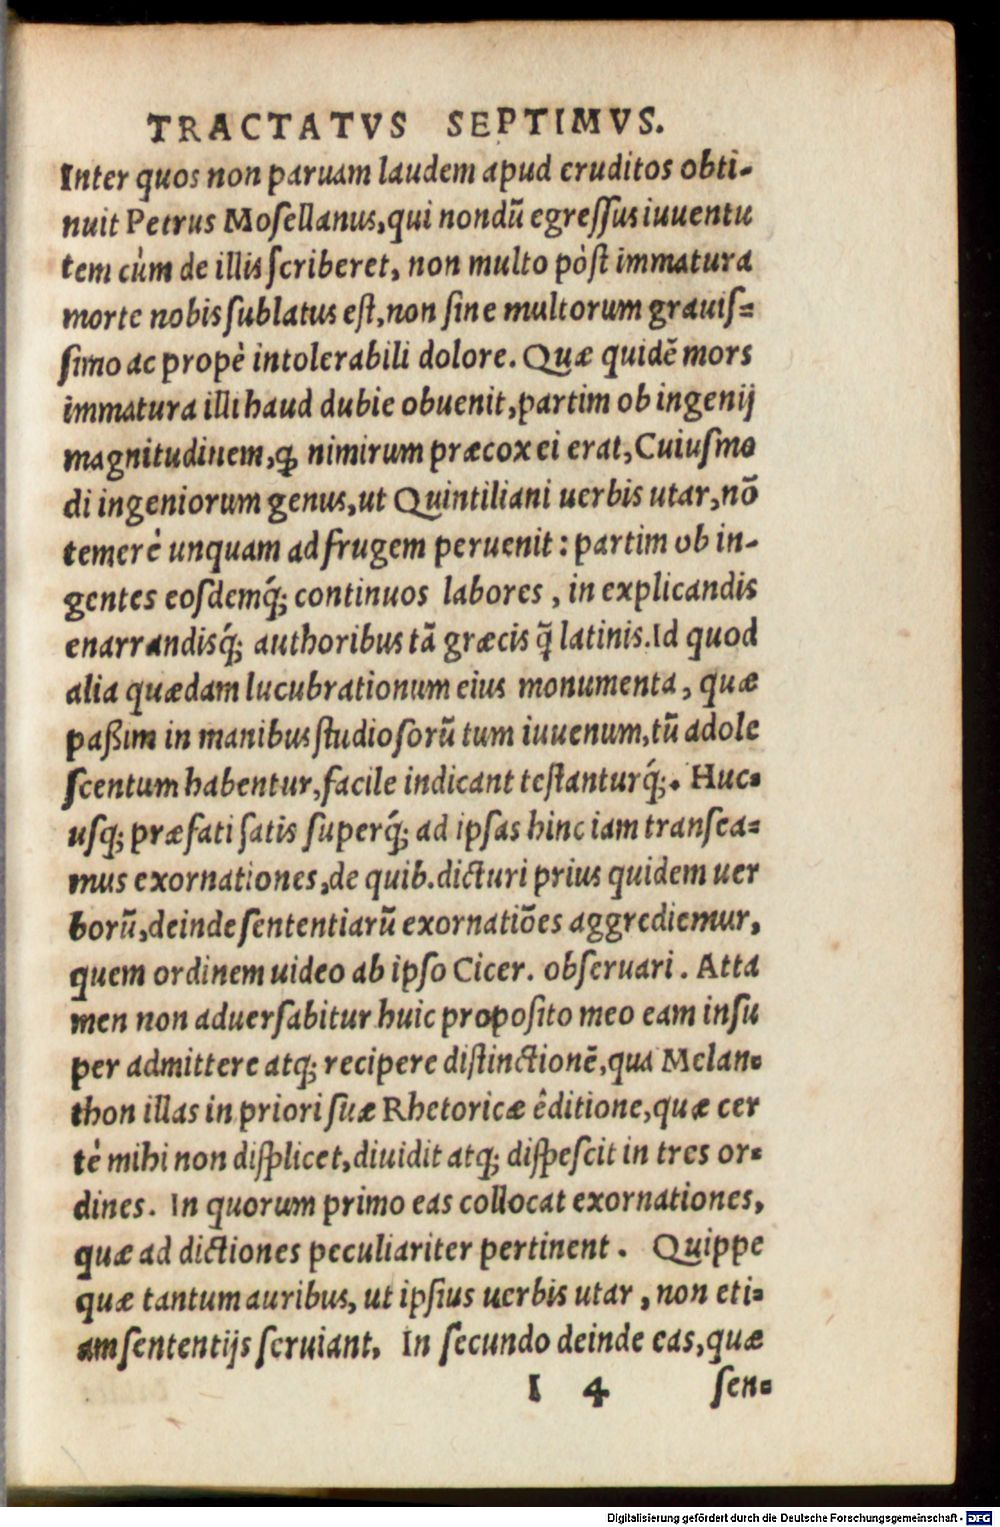 TRACTATVS SEPTIMVS.
Inter quos non paruam laudem apud eruditos obti-
nuit Petrus Moſellanus, qui nondũ egreſſus iuuentu
tem cùm de illis ſcriberet, non multo pòſt immatura
morte nobis ſublatus eſt, non ſine multorum grauiſ=
ſimo ac propè intolerabili dolore. Quæ quidẽ mors
immatura illi haud dubie obuenit, partim ob ingenij
magnitudinem, ꝙ nimirum præcox ei erat, Cuiuſmo
di ingeniorum genus, ut Quintiliani uerbis utar, nõ
temerè unquam ad frugem peruenit: partim ob in-
gentes eoſdemq́; continuos labores, in explicandis
enarrandisq́; authoribus tã græcis q̃ latinis. Id quod
alia quædam lucubrationum eius monumenta, quæ
paßim in manibus ſtudioſorũ tum iuuenum, tũ adole
ſcentum habentur, facile indicant teſtanturq́;. Huc-
uſq; præfati ſatis ſuperq́; ad ipſas hinc iam tranſea=
mus exornationes, de quib. dicturi prius quidem uer
borũ, deinde ſententiarũ exornatiões aggrediemur,
quem ordinem uideo ab ipſo Cicer. obſeruari. Atta
men non aduerſabitur huic propoſito meo eam inſu
per admittere atq; recipere diſtinctionẽ, qua Melan-
thon illas in priori ſuæ Rhetoricæ êditione, quæ cer
tè mihi non diſplicet, diuidit atq; diſpeſcit in tres or-
dines. In quorum primo eas collocat exornationes,
quæ ad dictiones peculiariter pertinent. Quippe
quæ tantum auribus, ut ipſius uerbis utar, non eti=
am ſententijs ſeruiant. In ſecundo deinde eas, quæ
I 4 ſen=
Digitalisierung gefördert durch die Deutsche Forschungsgemeinschaft - DFG